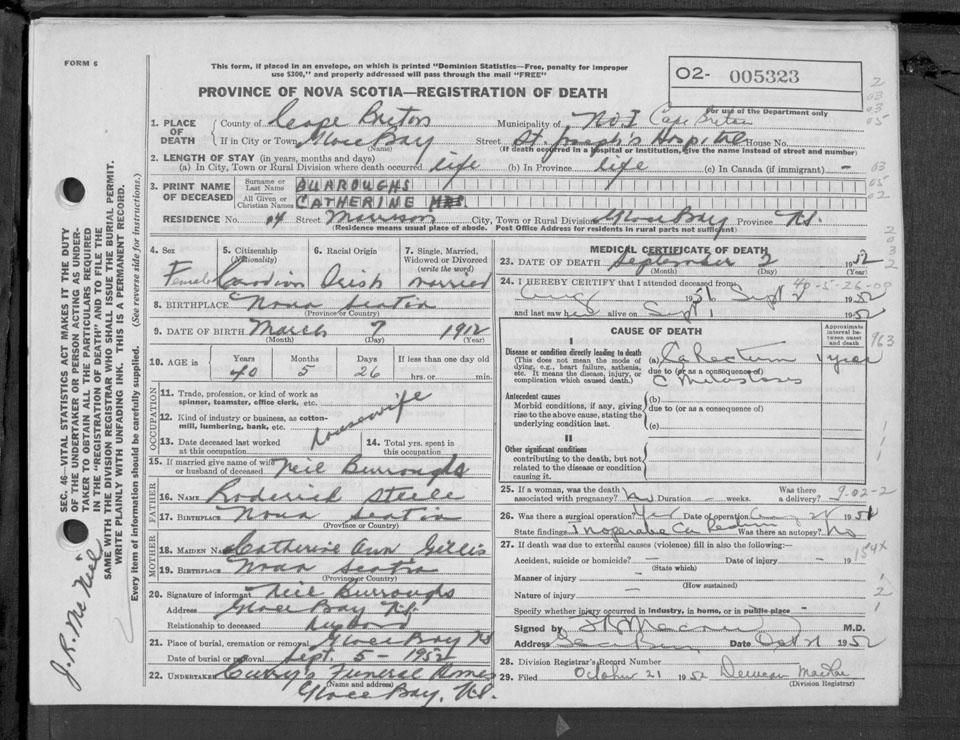 FORM 6
This form, if placed in an envelope, on which is printed "Dominion Statistics—Free, penalty for improper
use $300," and properly addressed will pass through the mail "FREE"
PROVINCE OF NOVA SCOTIA—REGISTRATION OF DEATH
O2- 005323
For use of the Department only
1. PLACE OF DEATH
County of Cape Breton Municipality of No I Cape Breton
If in City or Town Glace Bay Street St. Joseph's Hospital House No.
(Name) (If death occurred in a hospital or institution, give the name instead of street and number)
2. LENGTH OF STAY (in years, months and days)
(a) In City, Town or Rural Division where death occurred life (b) In Province life (c) In Canada (if immigrant) —
3. PRINT NAME OF DECEASED
Surname or Last Name BURROUGHS
All Given or Christian Names CATHERINE MRS
RESIDENCE No. 04 Street Morrison City, Town or Rural Division Glace Bay Province N.S.
(Residence means usual place of abode. Post Office Address for residents in rural parts not sufficient)
4. Sex 5. Citizenship (Nationality) 6. Racial Origin 7. Single, Married, Widowed or Divorced (write the word)
Female Canadian Irish married
8. BIRTHPLACE Nova Scotia
(Province or Country)
9. DATE OF BIRTH March 7 1912
(Month) (Day) (Year)
10. AGE is Years Months Days If less than one day old
40 5 26 hrs. or min.
OCCUPATION
11. Trade, profession, or kind of work as
spinner, teamster, office clerk, etc.
12. Kind of industry or business, as cotton-
mill, lumbering, bank, etc.
housewife
13. Date deceased last worked at this occupation 14. Total yrs. spent in this occupation
15. If married give name of wife or husband of deceased Neil Burroughs
FATHER
16. NAME Roderick Steele
17. BIRTHPLACE Nova Scotia
(Province or Country)
MOTHER
18. MAIDEN NAME Catherine Ann Gillis
19. BIRTHPLACE Nova Scotia
(Province or Country)
20. Signature of informant Neil Burroughs
Address Glace Bay N.S.
Relationship to deceased husband
21. Place of burial, cremation or removal Glace Bay N.S
Date of burial or removal Sept. 5 - 1952
22. UNDERTAKER Curry's Funeral Home
(Name and address)
Glace Bay, N.S.
MEDICAL CERTIFICATE OF DEATH
23. DATE OF DEATH September 2 1952
(Month) (Day) (Year)
24. I HEREBY CERTIFY that I attended deceased from 40-5-26-09
Aug 1951 Sept 2 1952
and last saw her alive on Sept 1 1952
CAUSE OF DEATH
Approximate interval between onset and death
I
Disease or condition directly leading to death (a) Ca Rectum 1 year
(This does not mean the mode of
dying, e.g., heart failure, asthenia,
etc. It means the disease, injury, or
complication which caused death.)
due to (or as a consequence of)
c Metastases
Antecedent causes
Morbid conditions, if any, giving
rise to the above cause, stating the
underlying condition last.
(b)
due to (or as a consequence of)
(c)
II
Other significant conditions
contributing to the death, but not
related to the disease or condition
causing it.
25. If a woman, was the death associated with pregnancy? No Duration - weeks. Was there a delivery? 9-02-2
26. Was there a surgical operation? Yes Date of operation Aug 28 1951
State findings Inoperable Ca Rectum Was there an autopsy? No
27. If death was due to external causes (violence) fill in also the following:—
154X
Accident, suicide or homicide? — Date of injury — 19
(State which)
Manner of injury —
(How sustained)
Nature of injury —
Specify whether injury occurred in industry, in home, or in public place —
Signed by M.D.
Address Oct 21 1952
28. Division Registrar's Record Number
29. Filed October 21 1952
(Division Registrar)
SEC. 46—VITAL STATISTICS ACT MAKES IT THE DUTY
OF THE UNDERTAKER OR PERSON ACTING AS UNDER-
TAKER TO OBTAIN ALL THE PARTICULARS REQUIRED
IN THE "REGISTRATION OF DEATH" AND TO FILE THE
SAME WITH THE DIVISION REGISTRAR WHO SHALL ISSUE THE BURIAL PERMIT.
WRITE PLAINLY WITH UNFADING INK. THIS IS A PERMANENT RECORD.
Every item of information should be carefully supplied. (See reverse side for instructions.)
J. R. McNeil